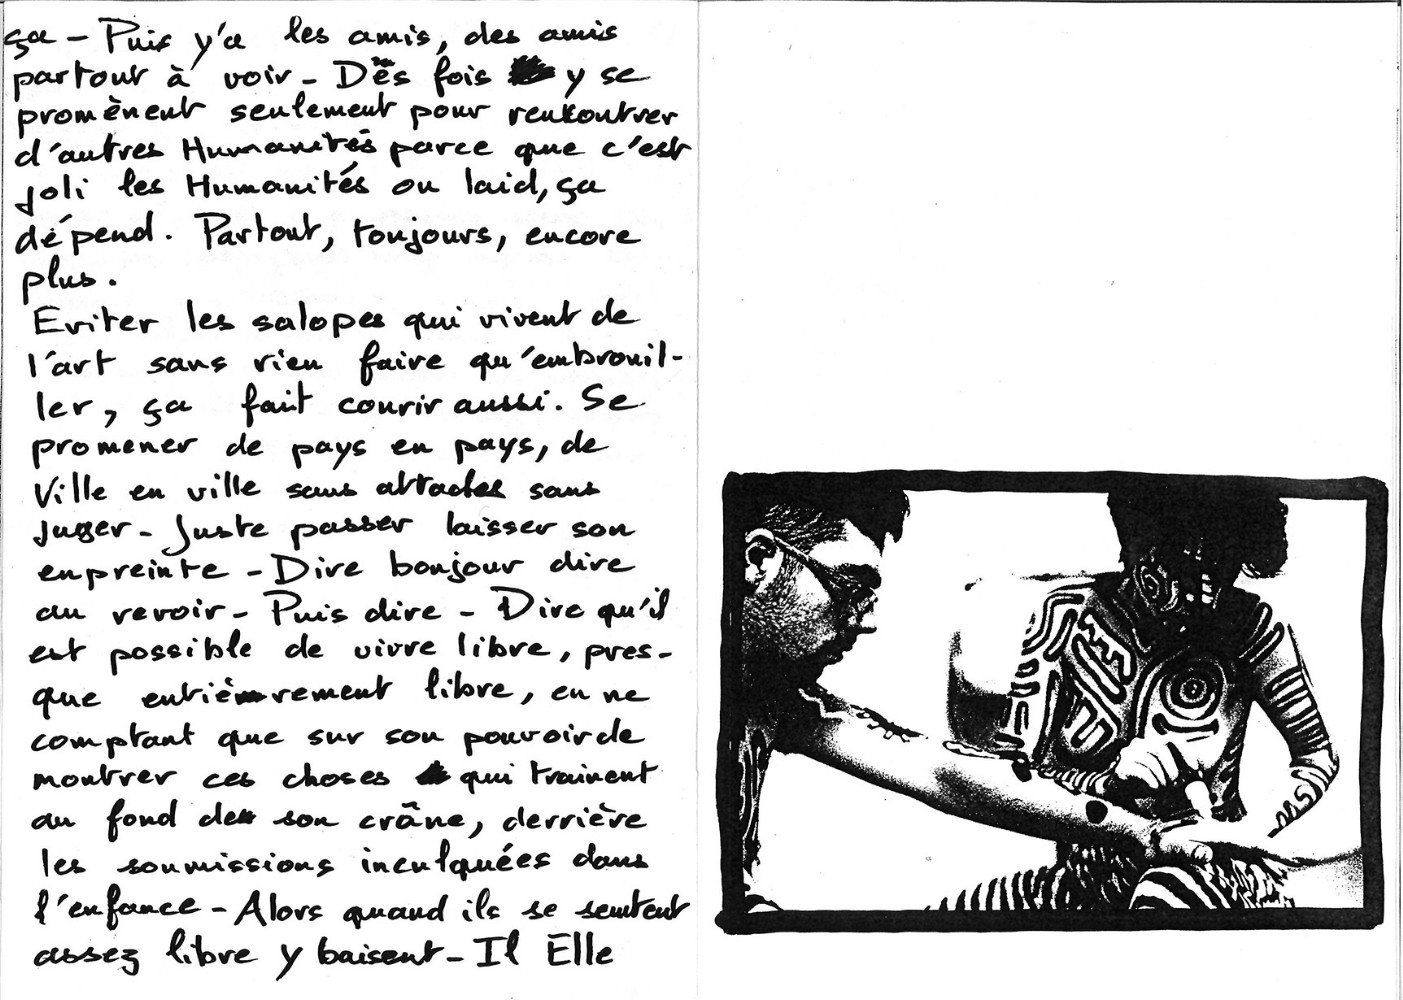 ça - Puis y'a les amis, des amis
partout à voir - Dès fois y se
promènent seulement pour renkontrer
d'autres Humanités parce que c'est
joli les Humanités ou laid, ça
dépend. Partout, toujours, encore
plus.
Eviter les salopes qui vivent de
l'art sans rien faire qu'embrouil-
ler, ça fait courir aussi. Se
promener de pays en pays, de
Ville en ville sans attaches sans
juger - Juste passer laisser son
enpreinte - Dire bonjour dire
au revoir - Puis dire - Dire qu'il
est possible de vivre libre, pres-
que entièrement libre, en ne
comptant que sur son pouvoir de
montrer ces choses qui trainent
au fond de son crâne, derrière
les soumissions inculquées dans
l'enfance - Alors quand ils se sentent
assez libre y baisent - Il Elle